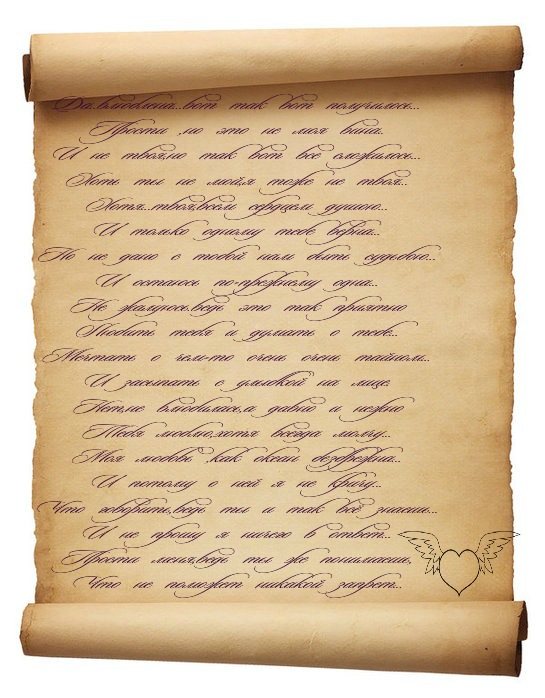 Да..влюблена...вот так вот получилось...
Прости ,но это не моя вина..
И не твоя,но так вот всё сложилось...
Хоть ты не мой,я тоже не твоя...
Хотя...твоя,всем сердцем душою...
И только одному тебе верна...
Но не дано с тобой нам быть судьбою...
И остаюсь по-прежнему одна...
Не жалуюсь,ведь это так приятно
Любить тебя и думать о тебе...
Мечтать о чем-то очень очень тайном...
И засыпать с улыбкой на лице.
Нет,не влюбилась,а давно и нежно
Тебя люблю,хотя всегда молчу...
Моя любовь ,как океан безбрежна...
И потому о ней я не кричу...
Что говорить,ведь ты и так всё знаешь...
И не прошу я ничего в ответ...
Прости меня,ведь ты же понимаешь,
Что не поможет никакой запрет...